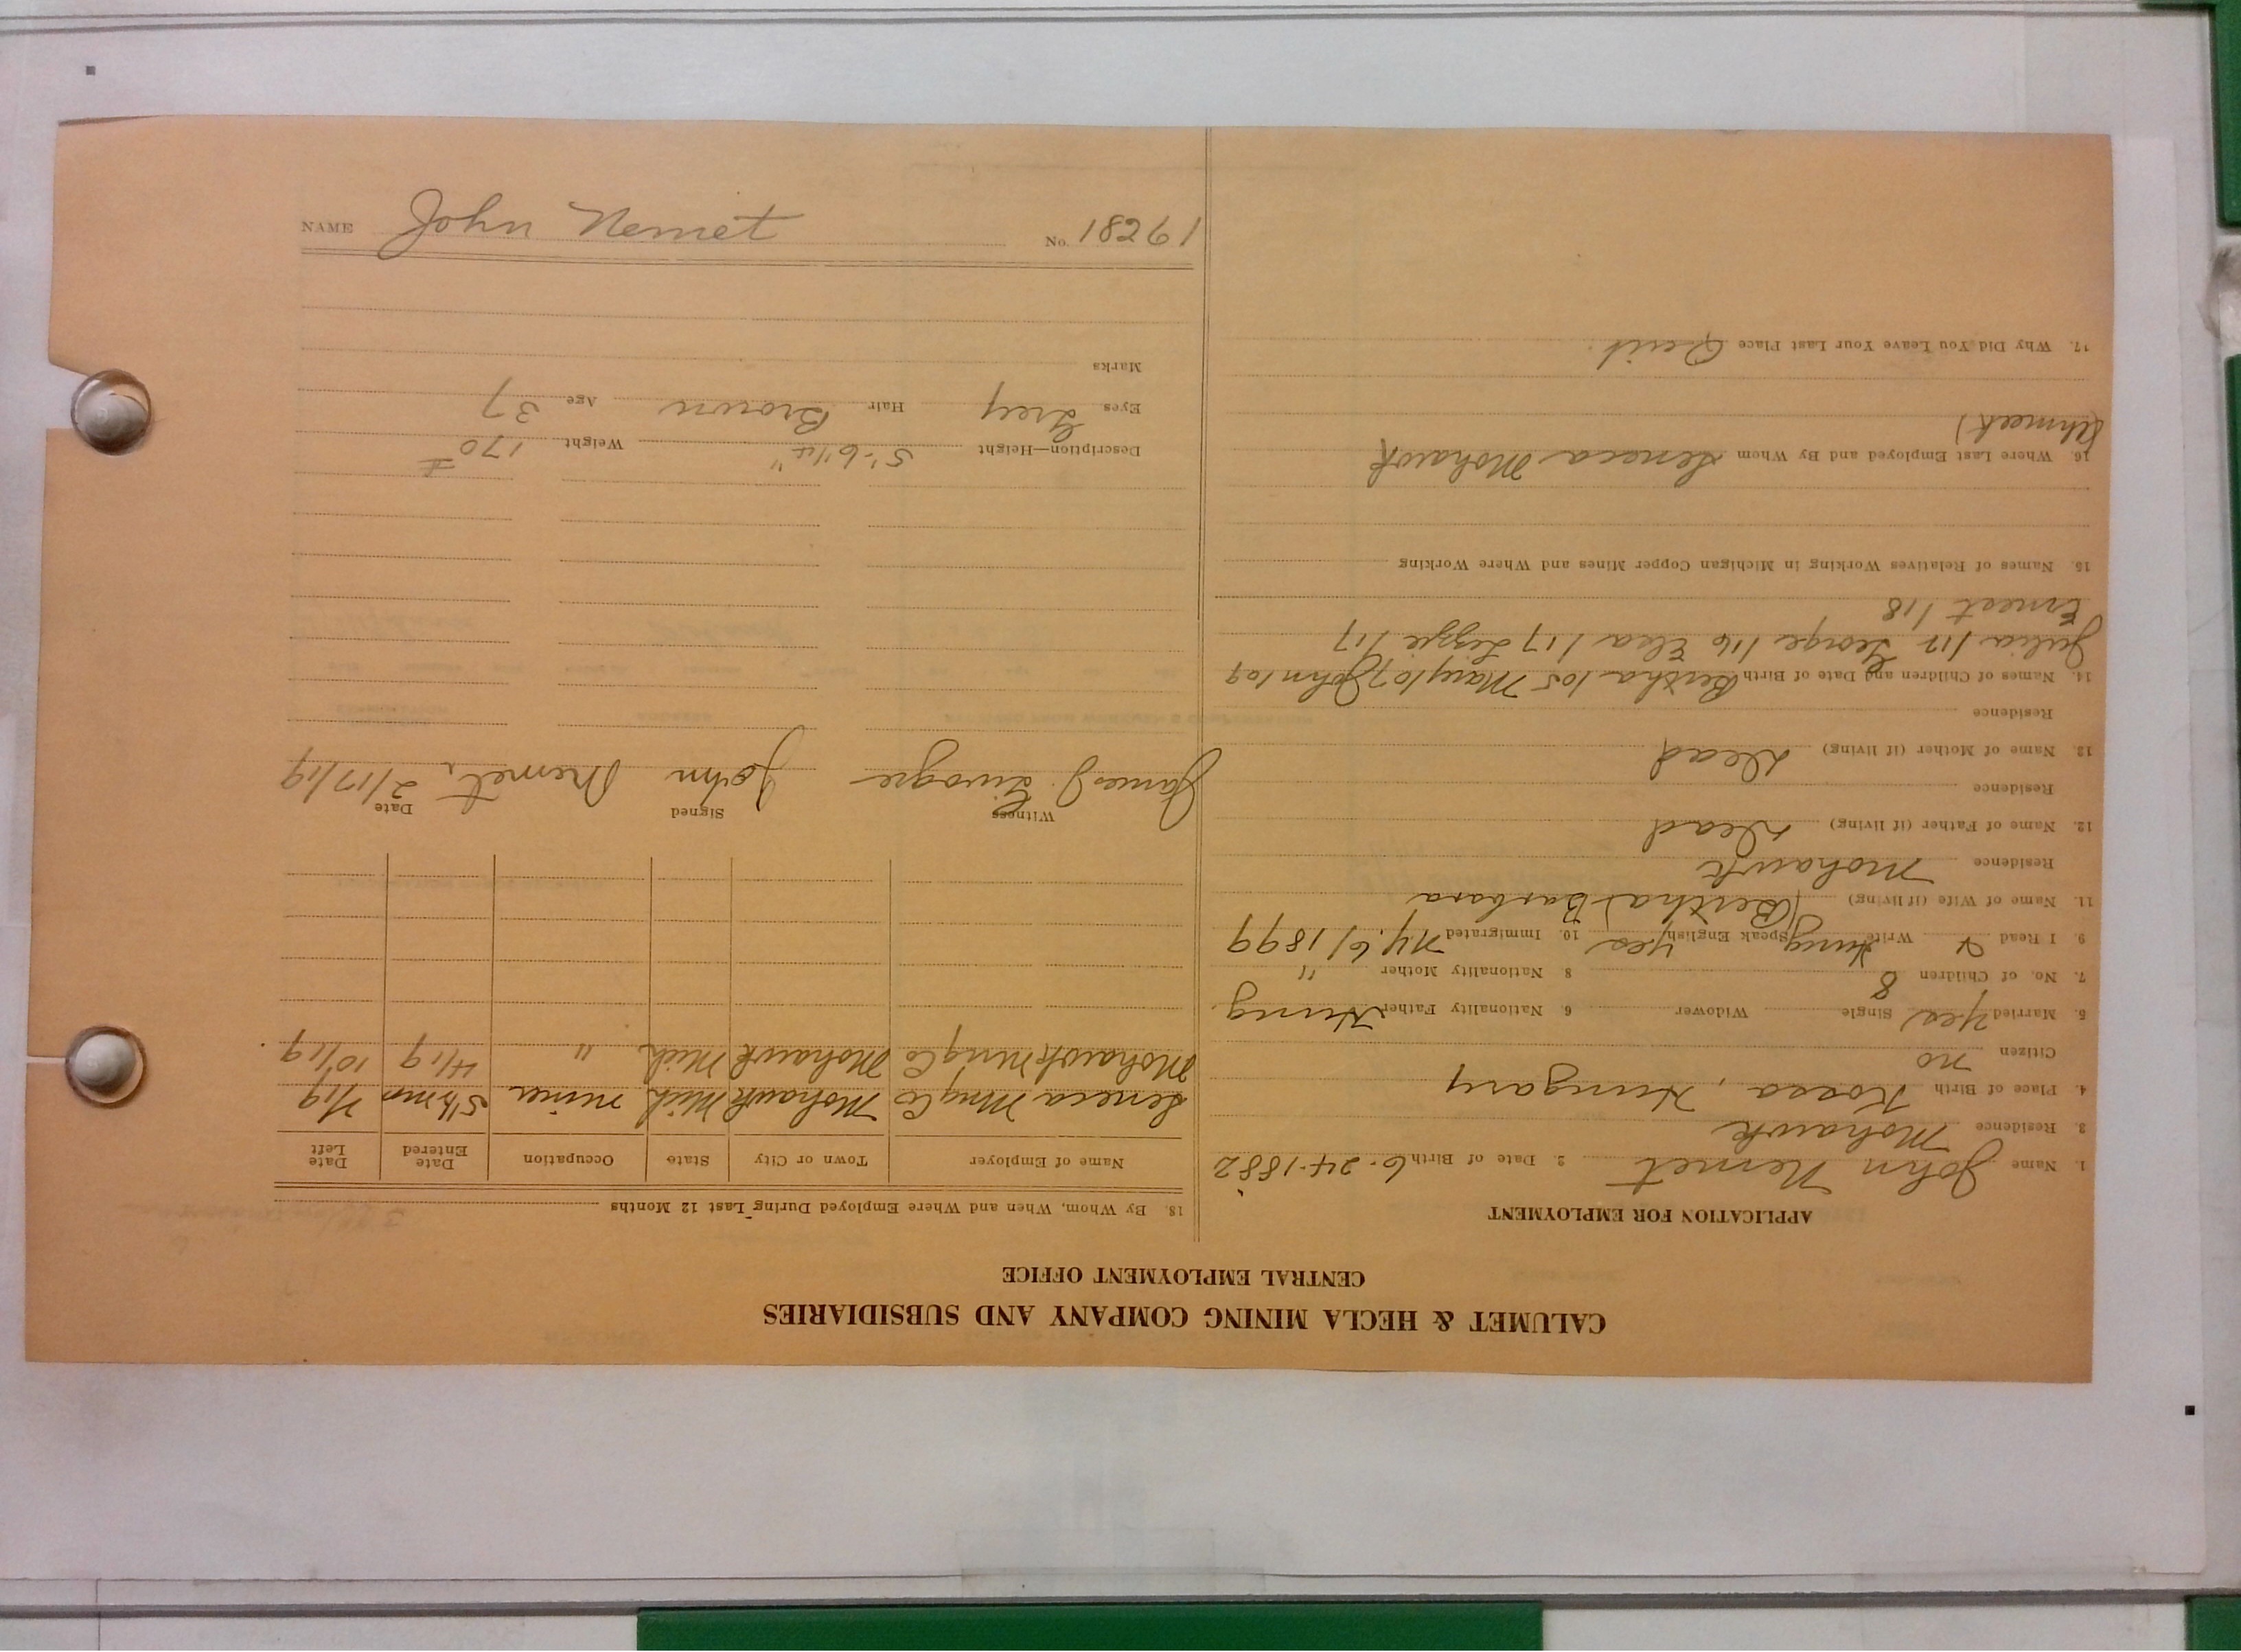 NAME John Nemet No. 18261
CALUMET & HECLA MINING COMPANY AND SUBSIDIARIES
CENTRAL EMPLOYMENT OFFICE
APPLICATION FOR EMPLOYMENT
1. Name John Nemet 2. Date of Birth 6-24-1882
3. Residence Mohawk
4. Place of Birth Kossa, Hungary
Citizen no
5. Married Yes Single Widower 6. Nationality Father Hung
7. No. of Children 8 8 Nationality Mother "
9. I Read & Write Hung Speak English Yes 10. Immigrated N.Y. 6/1899
11. Name of Wife (if living) (Bertha) Barbara
Residence Mohawk
12. Name of Father (if living) Dead
Residence
13. Name of Mother (if living) Dead
Residence
14. Names of Children and Date of Birth Bertha 105 Mary 107 John 109
Julia 112 George 116 Elea 117 Lizzie 117
Ernest 118
15. Names of Relatives Working in Michigan Copper Mines and Where Working
16. Where Last Employed and By Whom Seneca Mohawk
(Ahmeek)
17. Why Did You Leave Your Last Place Quit.
18. By Whom, When and Where Employed During Last 12 Months
Name of Employer Town or City State Occupation Date Entered Date Left
Seneca Mng Co Mohawk Mich miner 5½ mos
Mohawk Mng Co Mohawk Mich " 4/19 10/19
Witness Signed Date
James J. John Nemet 2/17/19
Description—Height 5'-6¼" Weight 170
Eyes Grey Hair Brown Age 37
Marks